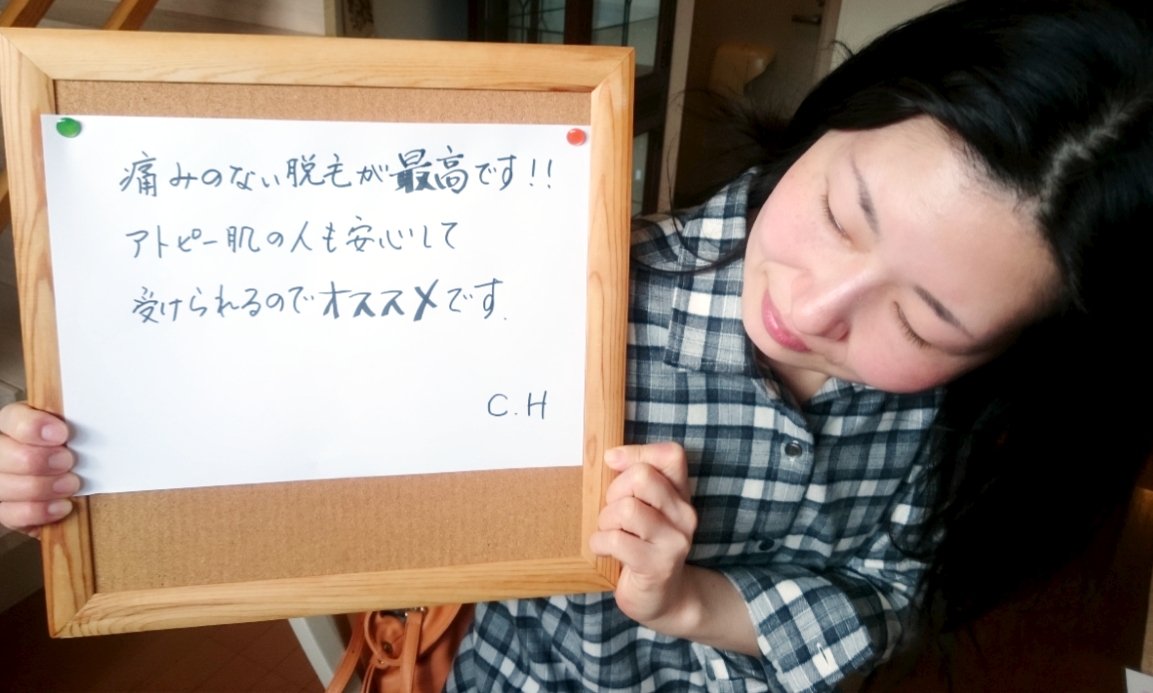 痛みのない脱毛が最高です!!
アトピー肌の人も安心して
受けられるのでオススメです.
C.H